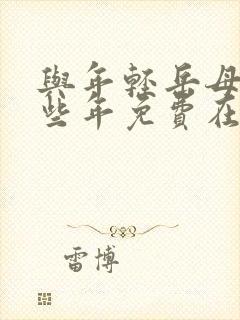 與年輕岳母
些年免費在
雷博